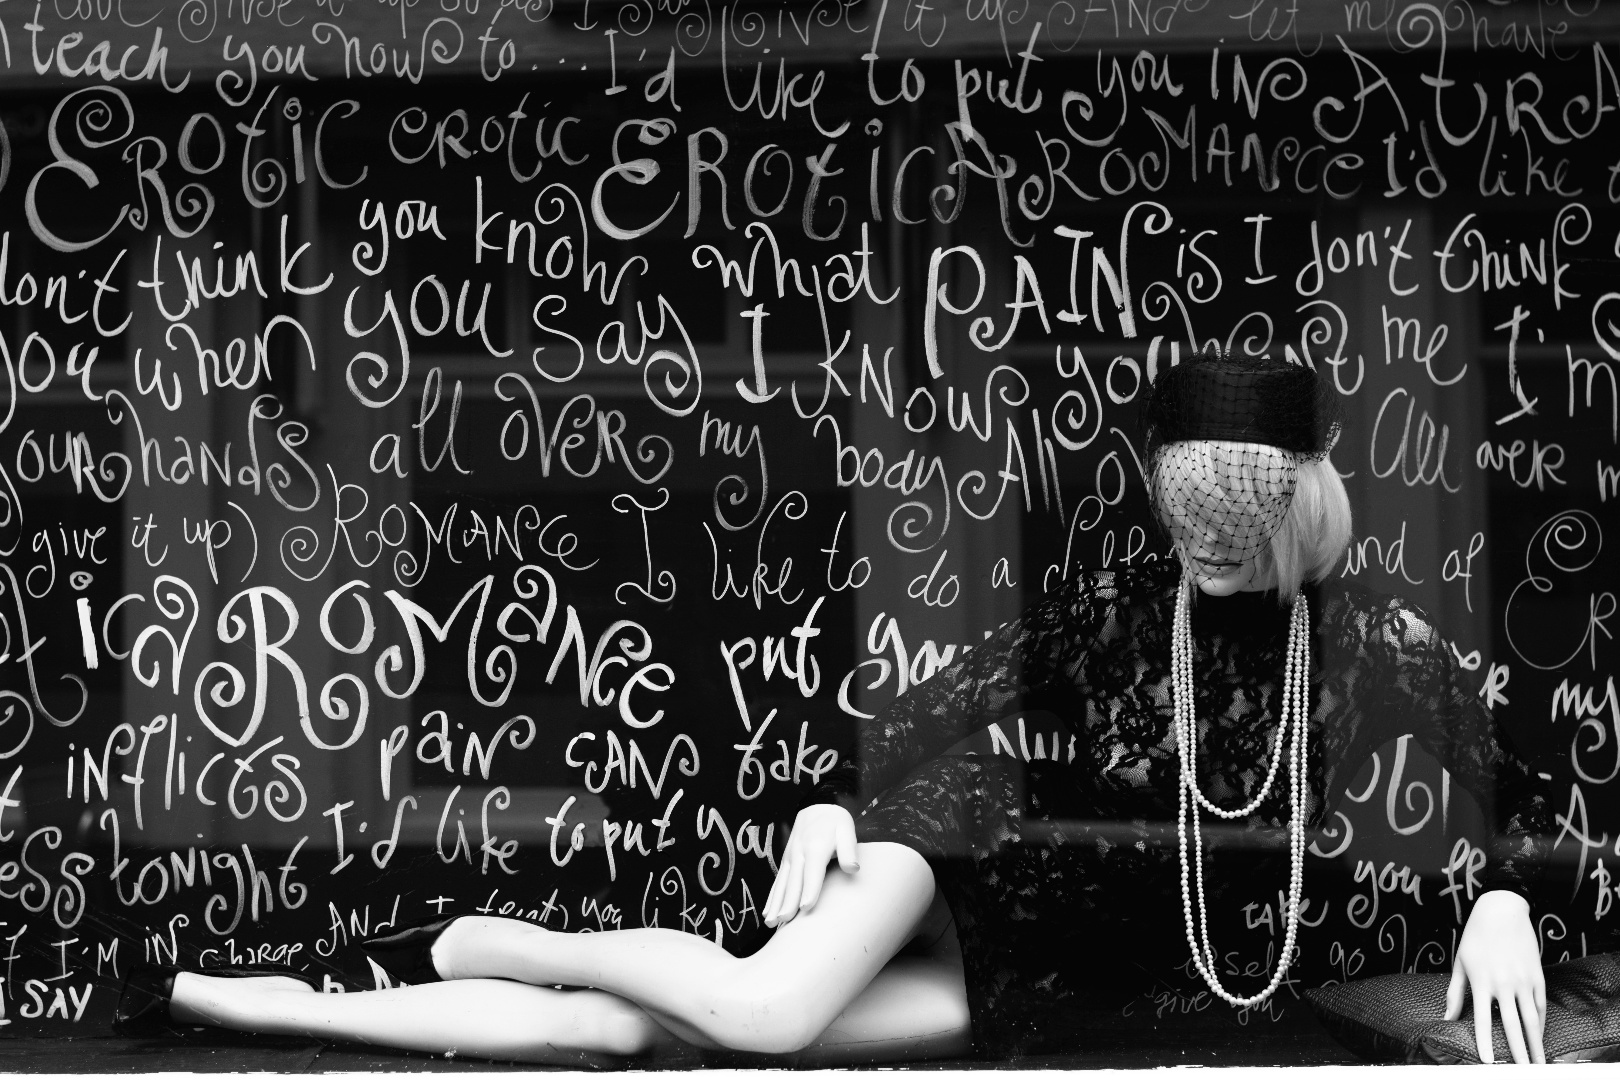 give it up AND let me have
teach you how to... I'd like to put you iN A tRA
ERotiC eRotic ERotiC A RoMANCe I'd like
don't think you know what PAIN is I don't think
you when you say I KNow you want me I'm
your hands all oVeR my body All over
give it up) RoMANCe I like to do a kind of
ic RoMaNce put you my
iNflicts paiN CAN take
tonight I'd like to put you you
AND I treat you like A take
if I'M iN charge go
I SAY give you